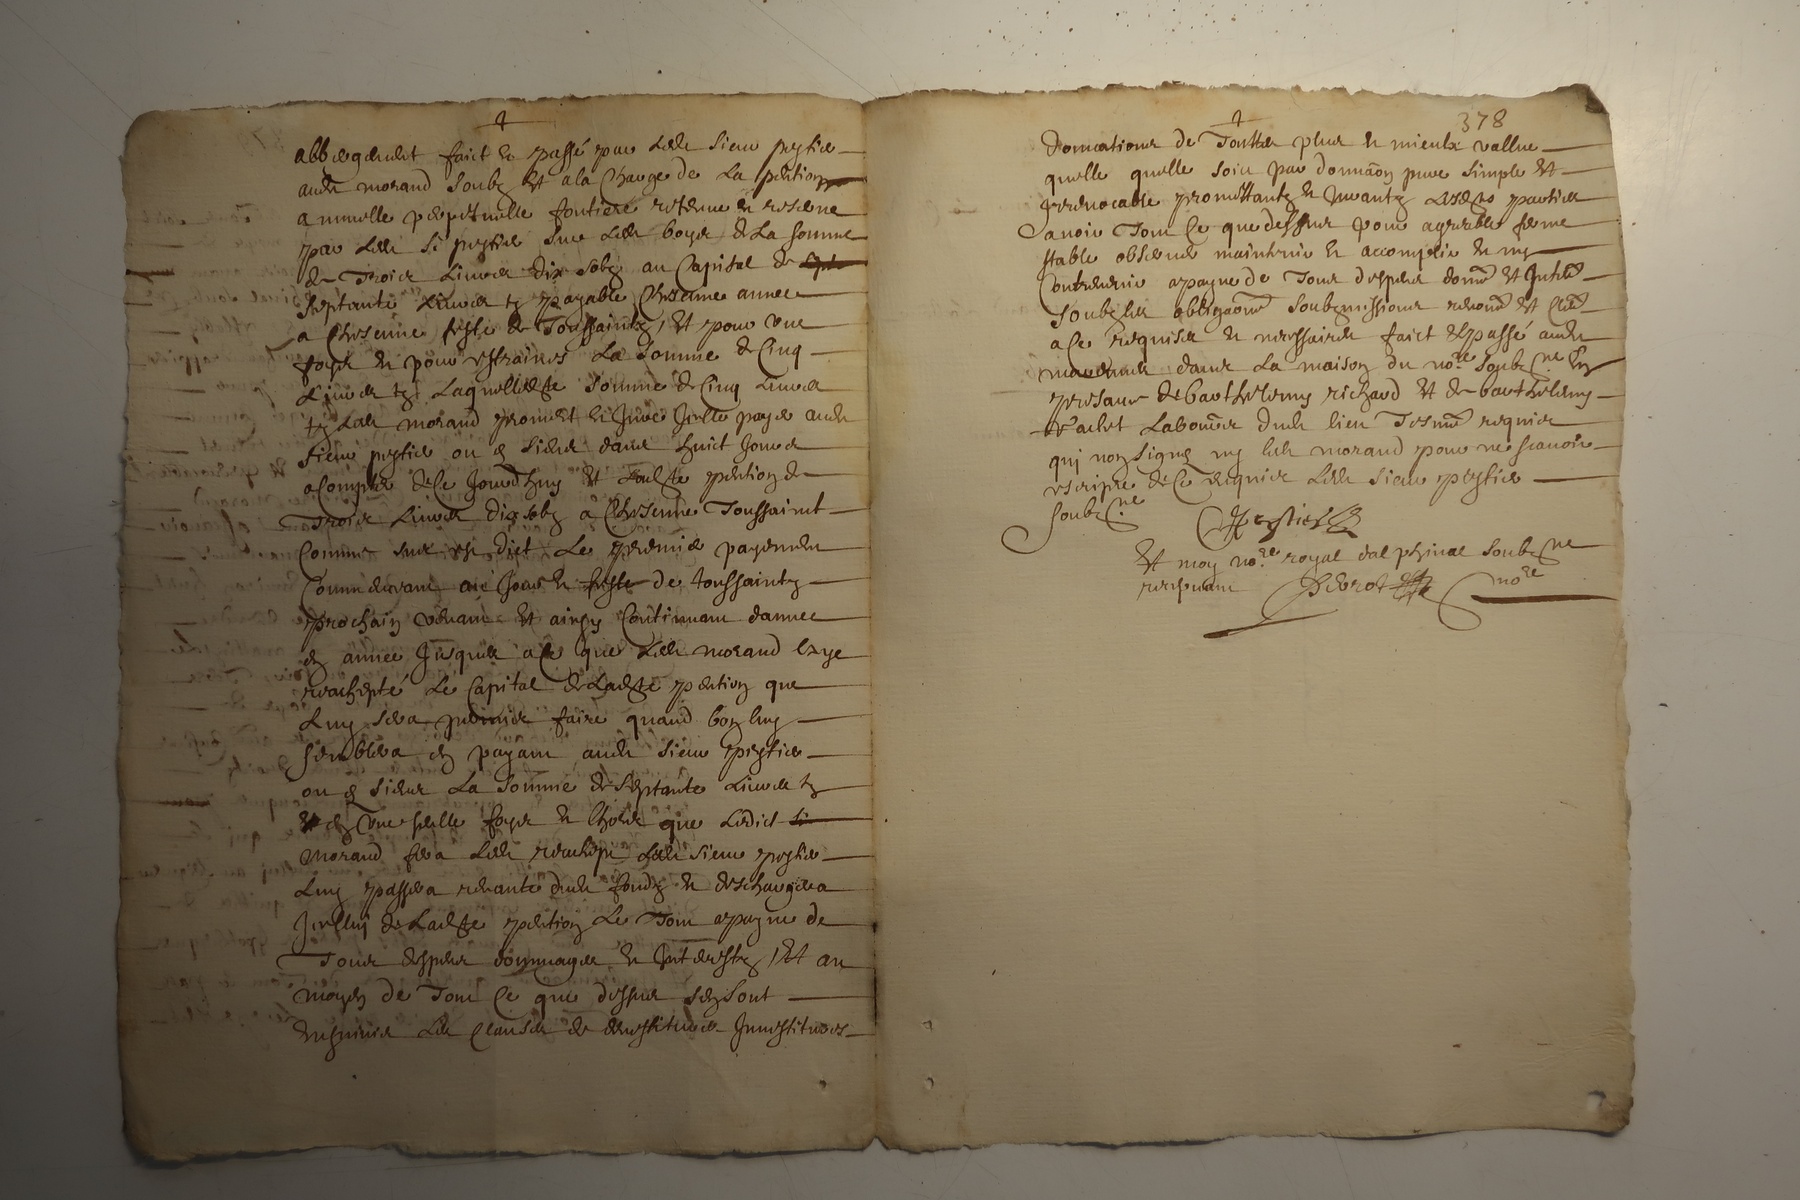 abbergement faict et passé par ledt sieur pertier
audt morand soubz et a la charge de la pention
annuelle perpetuelle fontiere retenue et reserve
par ledt sr pertier sur ledt boyer de la somme
de Troies Livres dix solz au Capital de
septante Livres tz payable chescune annee
a chescune feste de Toussaintz, et pour une
foyes et pour estraines la somme de Cinq
Livres tz Laquelle dte somme de Cinq Livres
tz ledt morand promect et Jure Jcelle payer audt
sieur pertier ou es siens dans huict Jours
a Compter de Ce Jourdhuy et Ladte pention de
Troies Livres dix solz a Chescune Toussainct
Comme sus est dict Le premier payement
Commencant au Jour et feste de toussaintz
prochain venant et ainsy Continuant dannee
en annee Jusques a Ce que ledt morand haye
reachepté Le Capital de Ladte pention que
Luy sera permis faire quand bon luy
semblera en payant audt sieur pertier
ou es siens La somme de septante Livres tz
et en une seulle foyes et lhors que Ledict
Morand fera ledt reachept ledt sieur pertier
Luy passera revente dudt fondz et deschargera
Jcelluy de Ladte pention Le Tout a payne de
Tous despens dommages et Jnterestz, et au
moyen de Tout Ce que dessus sensont
ensuivies Les Clauses de devestitures Jnvestitures
378
donnations de Touttes plus et mieulx vallue
quelle quelle soit par donnaon pure simple et
Jrrevocable promettantz et Jurantz Lesdtes parties
avoir Tout Ce que dessus pour agreable ferme
stable observer maintenir et accomplir et ny
Contrevenir a payne de Tous despens domes et Intes
soubz les obligaons soubzmissions renons et Cles
a Ce requises et necessaires faict et passé audt
dans La maison du nore soubzne En
presance de barthelemy richard et de barthelemy
vachet Laboureurs dudt lieu Tesms requis
qui non signe ny ledt morand pour ne scavoir
escripre de Ce enquis Ledt sieur pertier
soubzne Pertier
Et moy nore royal dalphinal soubzne
recepvant nore